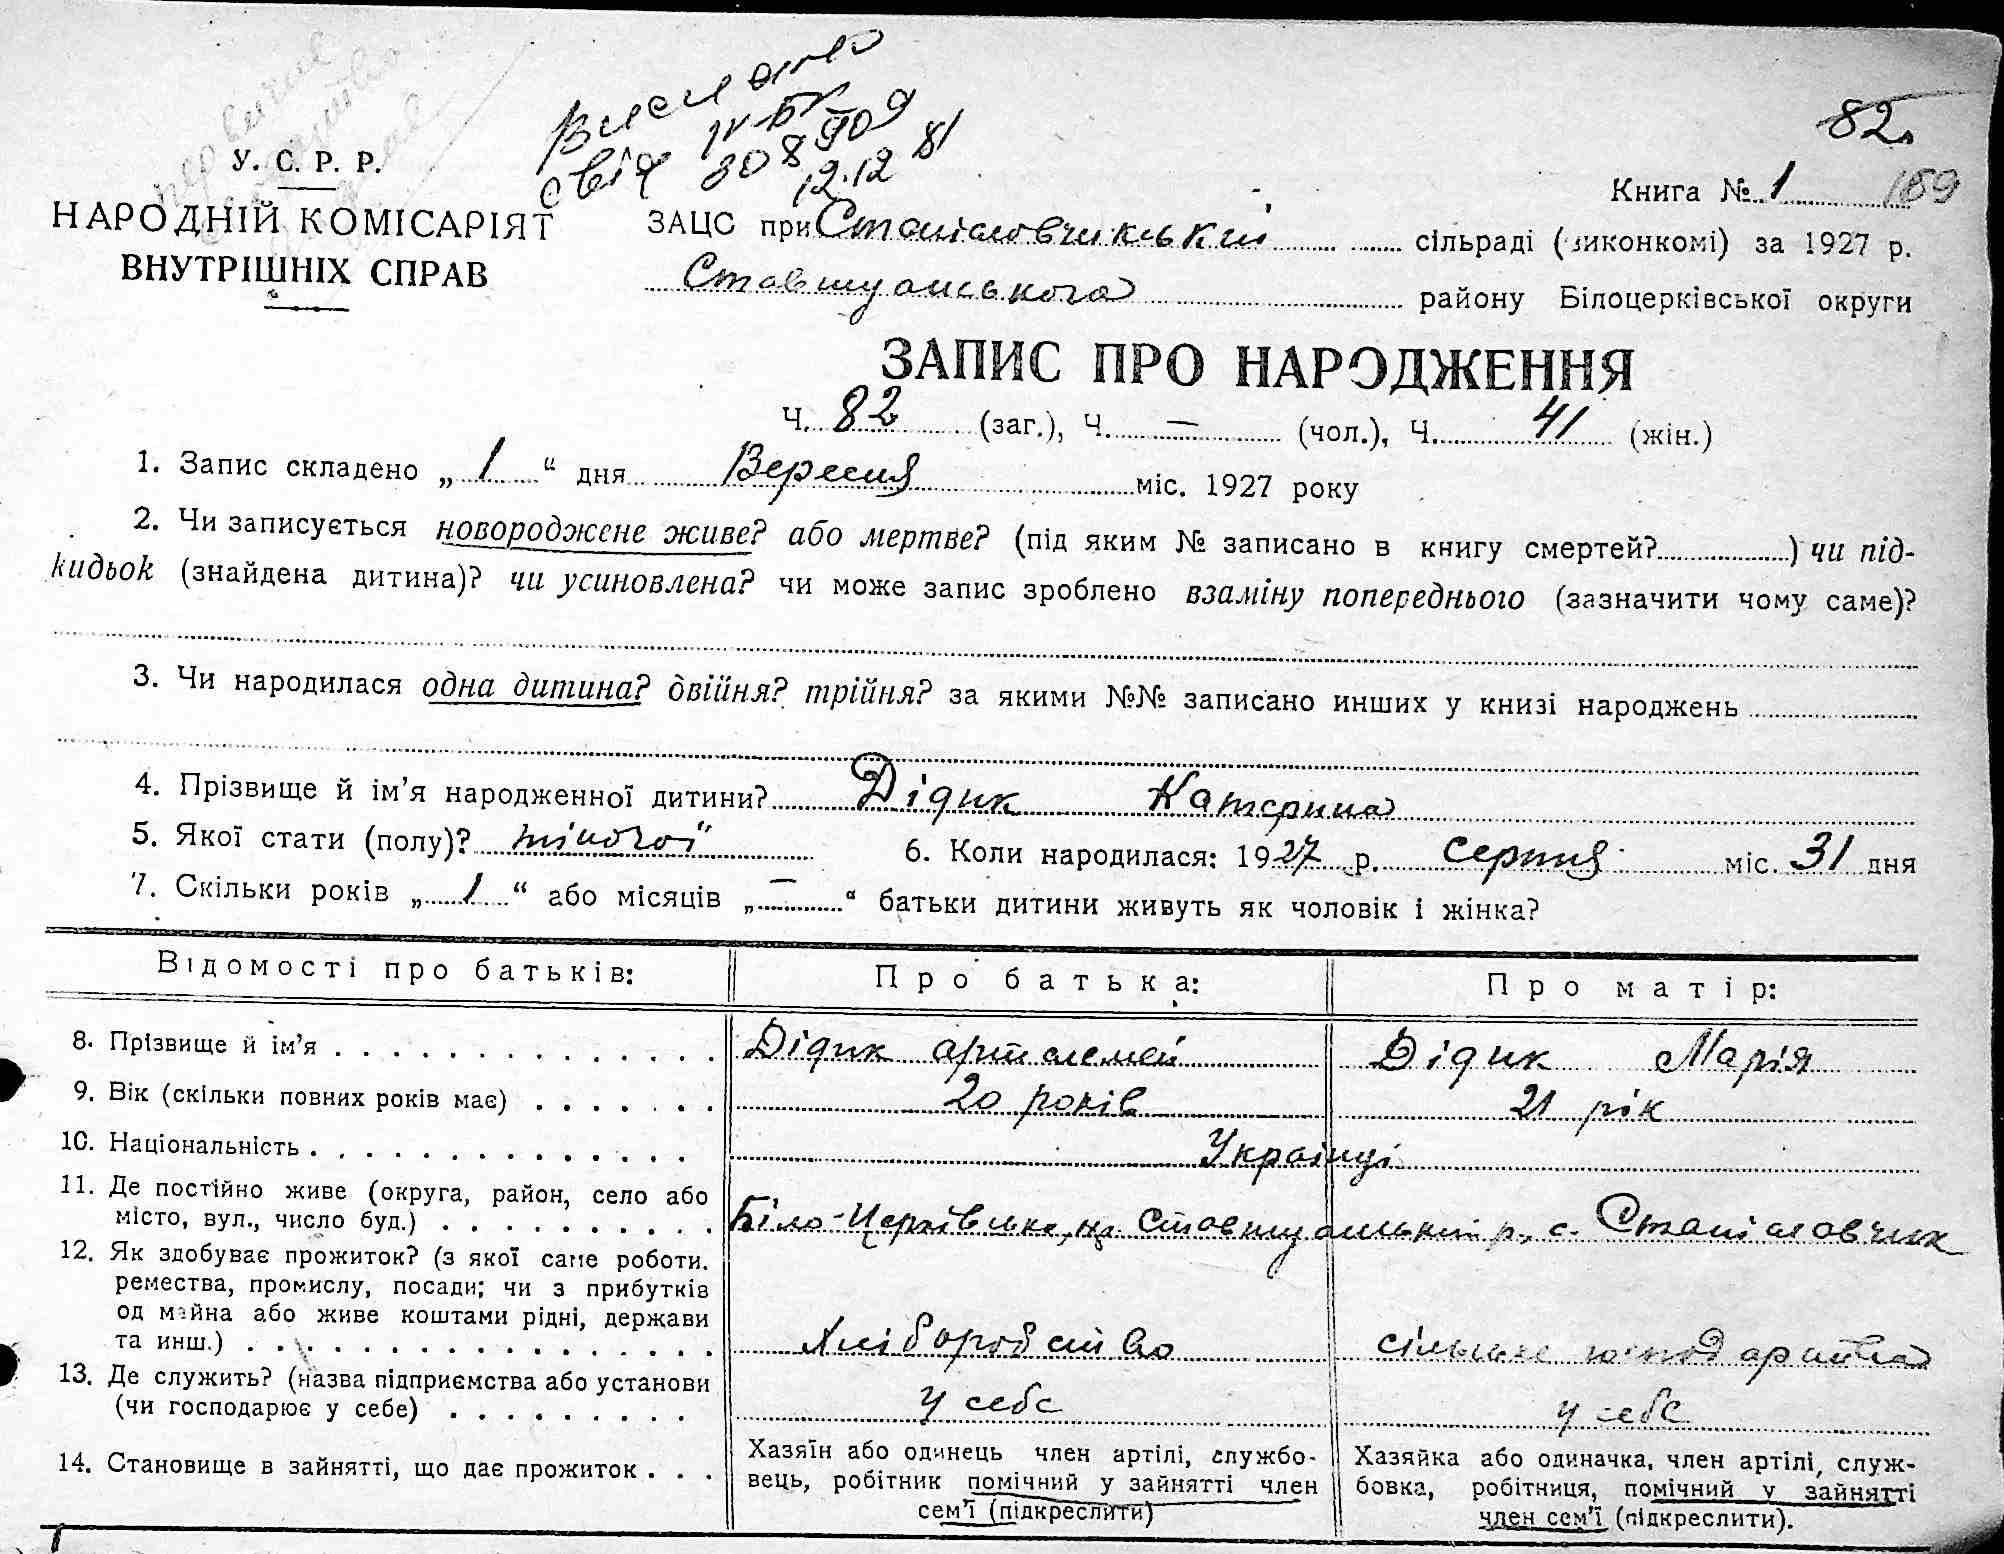 Вислано
IV-БК
свід 308909
12.12 81
82
У. С. Р. Р.
Книга № 1 189
НАРОДНІЙ КОМІСАРІЯТ
ВНУТРІШНІХ СПРАВ
ЗАЦС при Станіловчикській сільраді (виконкомі) за 1927 р.
Ставищанського району Білоцерківської округи
ЗАПИС ПРО НАРОДЖЕННЯ
Ч. 82 (заг.), Ч. — (чол.), Ч. 41 (жін.)
1. Запис складено „ 1 “ дня Вересня міс. 1927 року
2. Чи записується новороджене живе? або мертве? (під яким № записано в книгу смертей? ) чи під-
кидьок (знайдена дитина)? чи усиновлена? чи може запис зроблено взаміну попереднього (зазначити чому саме)?
3. Чи народилася одна дитина? двійня? трійня? за якими №№ записано инших у книзі народжень
4. Прізвище й ім’я народженної дитини? Дідик Катерина
5. Якої стати (полу)? жіночої 6. Коли народилася: 1927 р. серпня міс. 31 дня
7. Скільки років „ 1 “ або місяців „ — “ батьки дитини живуть як чоловік і жінка?
Відомості про батьків: Про батька: Про матір:
8. Прізвище й ім’я Дідик Артемей Дідик Марія
9. Вік (скільки повних років має) 20 років 21 рік
10. Національність Українці
11. Де постійно живе (округа, район, село або
місто, вул., число буд.) Біло-Церківська, Ставищанський р, с. Станіловчик
12. Як здобуває прожиток? (з якої саме роботи.
ремества, промислу, посади; чи з прибутків
од майна або живе коштами рідні, держави
та инш.) Хліборобство сільське господарство
13. Де служить? (назва підприємства або установи
(чи господарює у себе) у себе у себе
14. Становище в зайнятті, що дає прожиток
Хазяїн або одинець член артілі, службо-
вець, робітник помічний у зайнятті член
сем’ї (підкреслити)
Хазяйка або одиначка, член артілі, служ-
бовка, робітниця, помічний у зайнятті
член сем’ї (підкреслити).